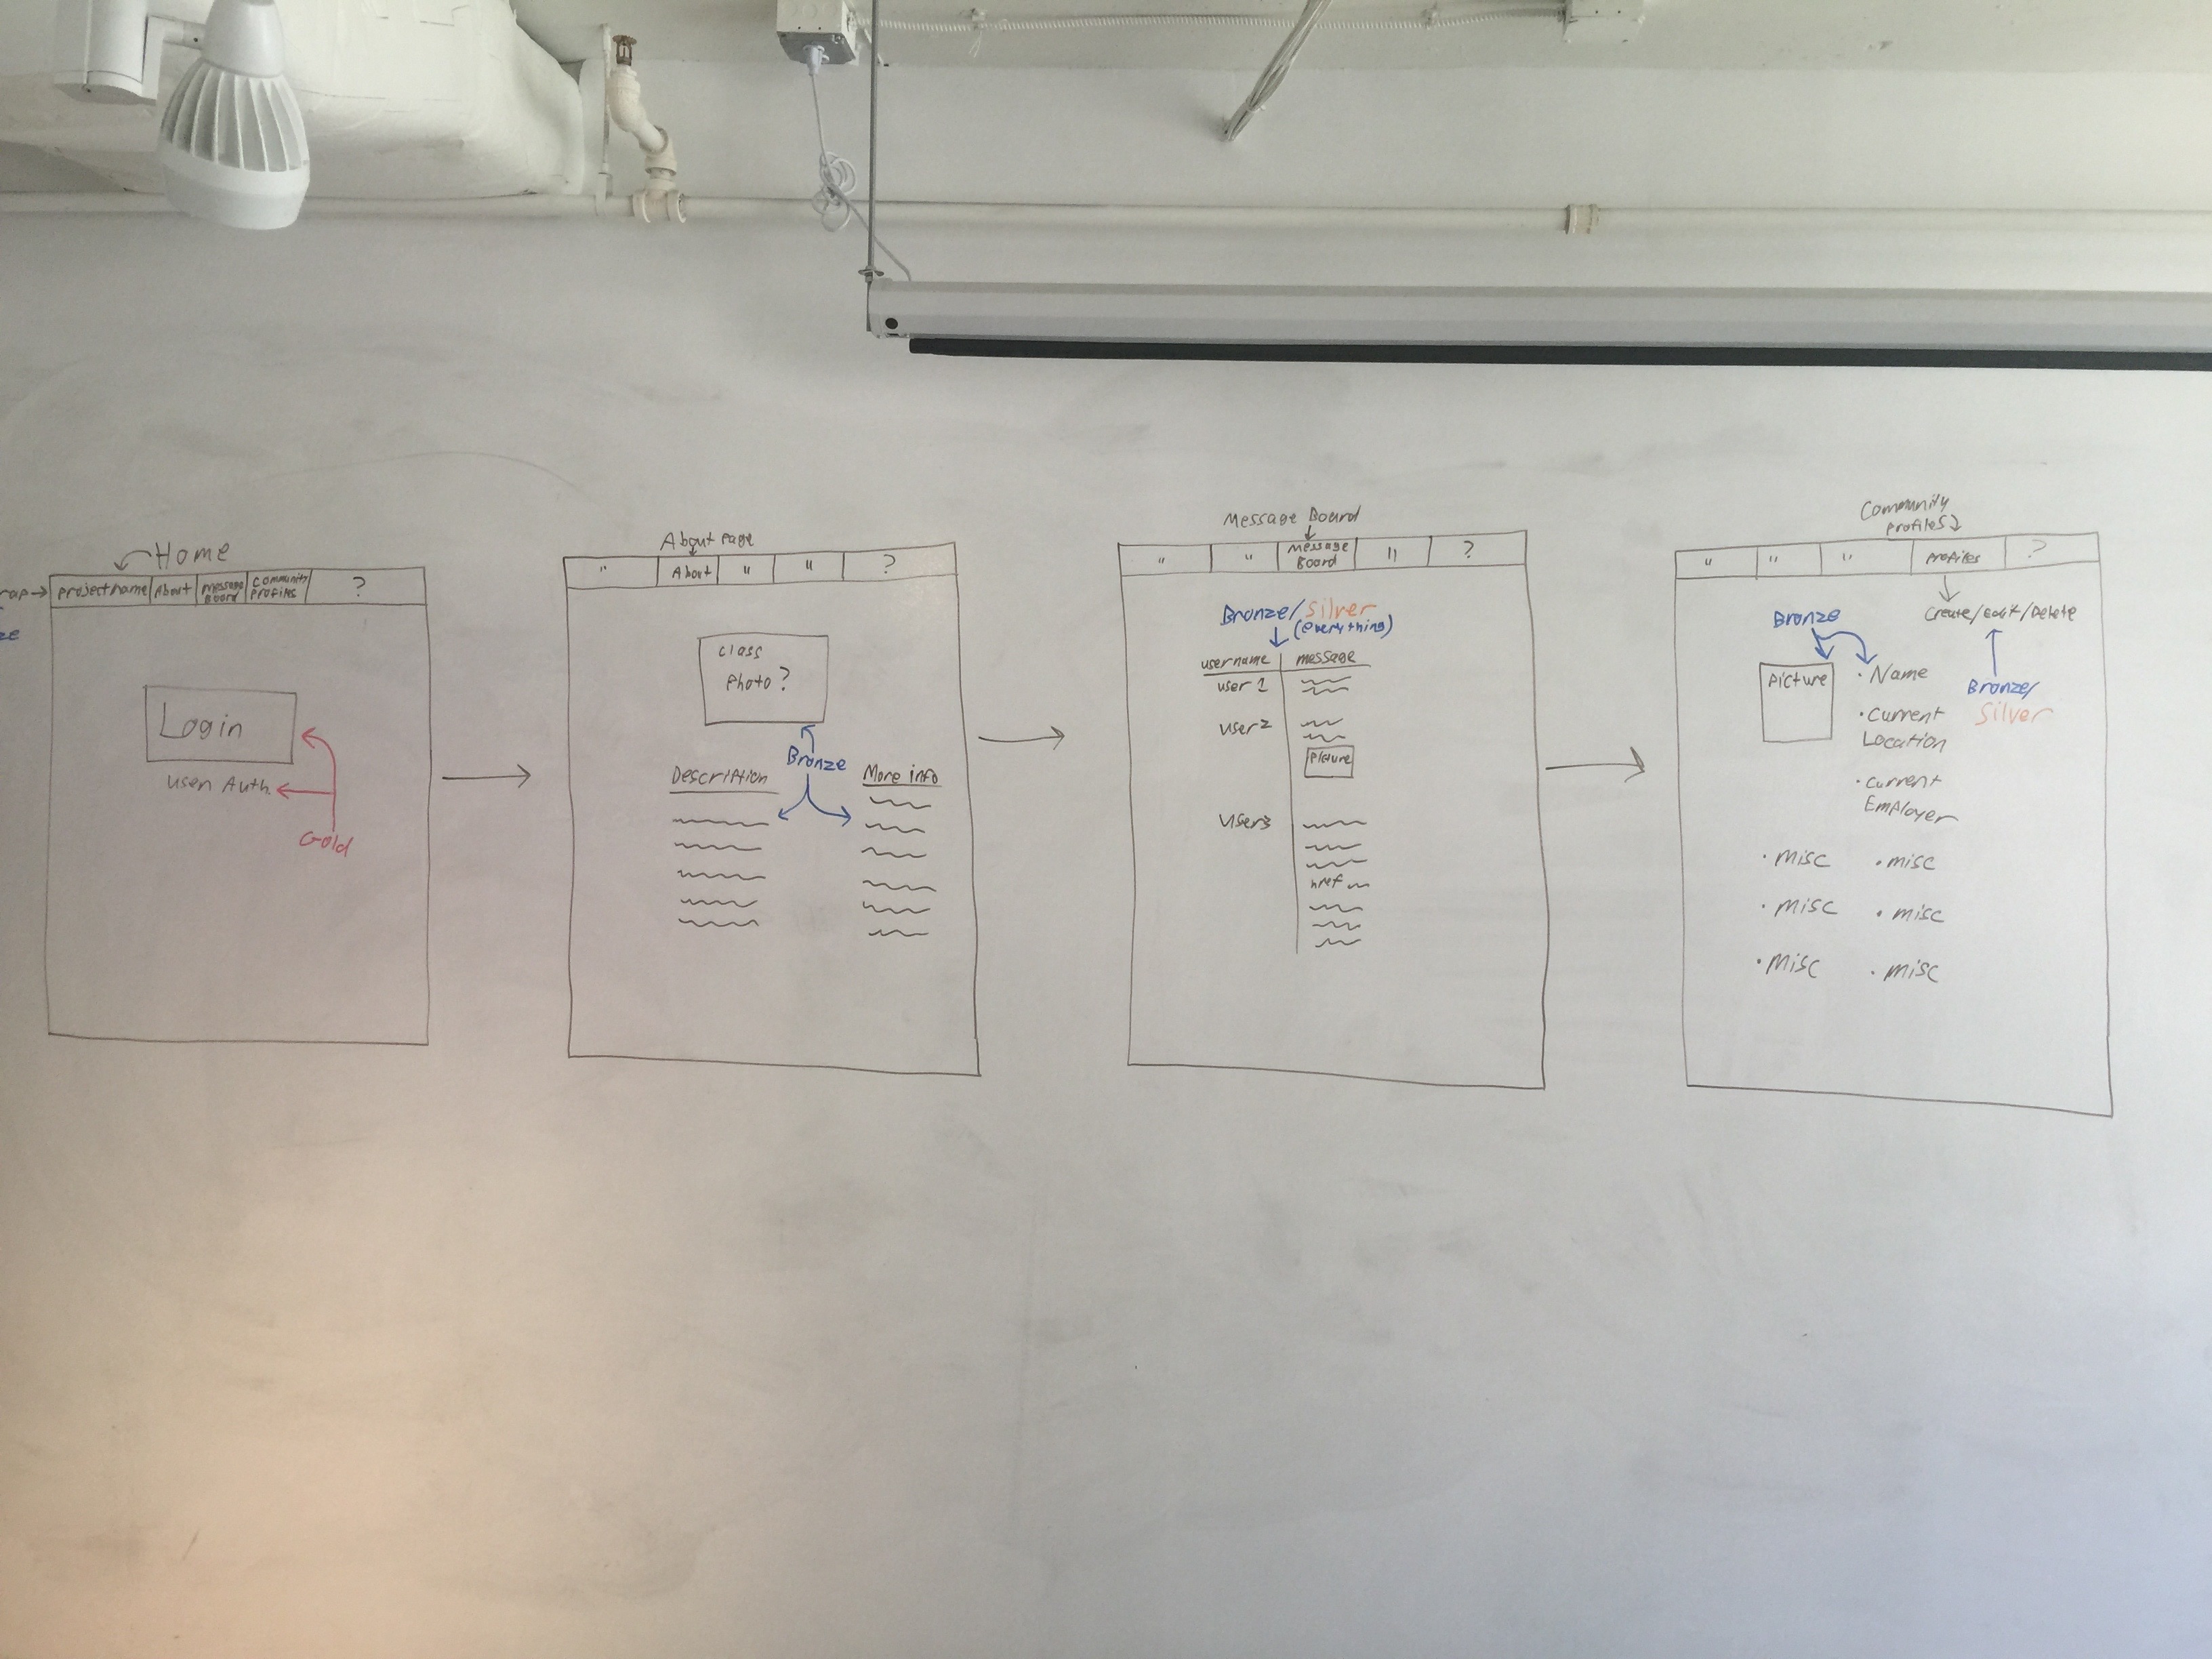 Home
project name
About
message
Board
Community
Profiles
?
Login
user Auth.
Gold
About page
"
About
"
"
?
class
photo?
Bronze
Description
More info
Message Board
"
"
Message
Board
"
?
Bronze/Silver
(everything)
username
message
user 1
user 2
picture
user 3
href
Community
Profiles
"
"
"
Profiles
?
Create/Edit/Delete
Bronze
Picture
· Name
· Current
Location
· Current
Employer
Bronze/
Silver
· misc
· misc
· misc
· misc
· misc
· misc